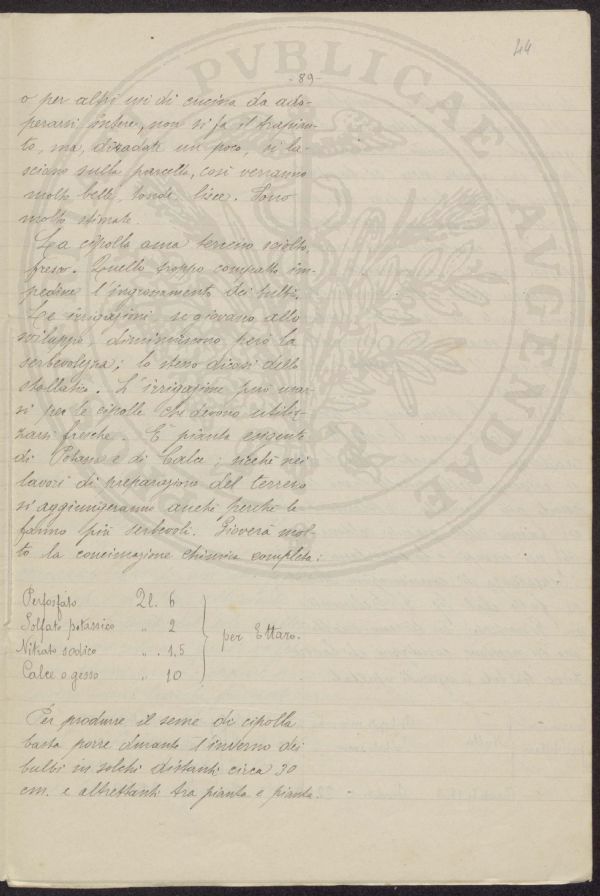 44
- 89 -
o per altri usi di cucina da ado-
perarsi intere, non si fa il trapian-
to, ma, diradate un poco, si la-
sciano sulla parcella, così verranno
molto belle, tonde, lisce. Sono
molto stimate.
La cipolla ama terreno sciolto,
fresco. Quello troppo compatto im-
pedisce l'ingrossamento dei bulbi.
Le irrigazioni se giovano allo
sviluppo, diminuiscono però la
serbevolezza; lo stesso dicasi dello
stallatico. L'irrigazione può usar-
si per le cipolle che devono utiliz-
zarsi fresche. È pianta esigente
di Potassa e di Calce; sicchè nei
lavori di preparazione del terreno
si aggiungeranno anche perchè le
fanno più serbevoli. Gioverà mol-
to la concimazione chimica completa:
Perfosfato Ql. 6
Solfato potassico „ 2
Nitrato sodico „ 1,5
Calce o gesso „ 10
per Ettaro.
Per produrre il seme di cipolla
basta porre durante l'inverno dei
bulbi in solchi distanti circa 30
cm. e altrettanti tra pianta e pianta.
PVBLICAE
AVGENDAE